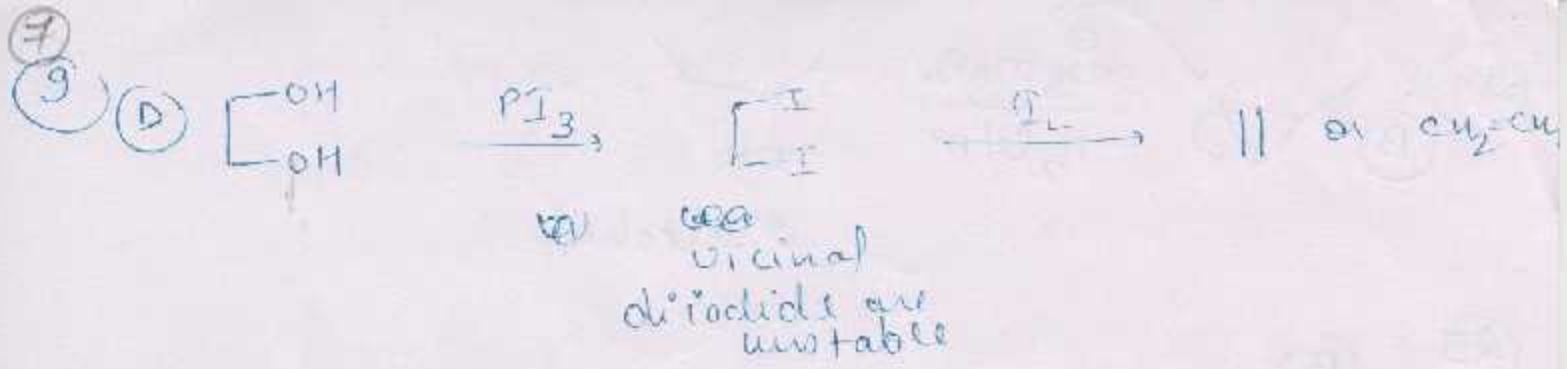 7
9 D OH PI3 I I2 || or CH2=CH
OH I
vicinal
diiodide are
unstable